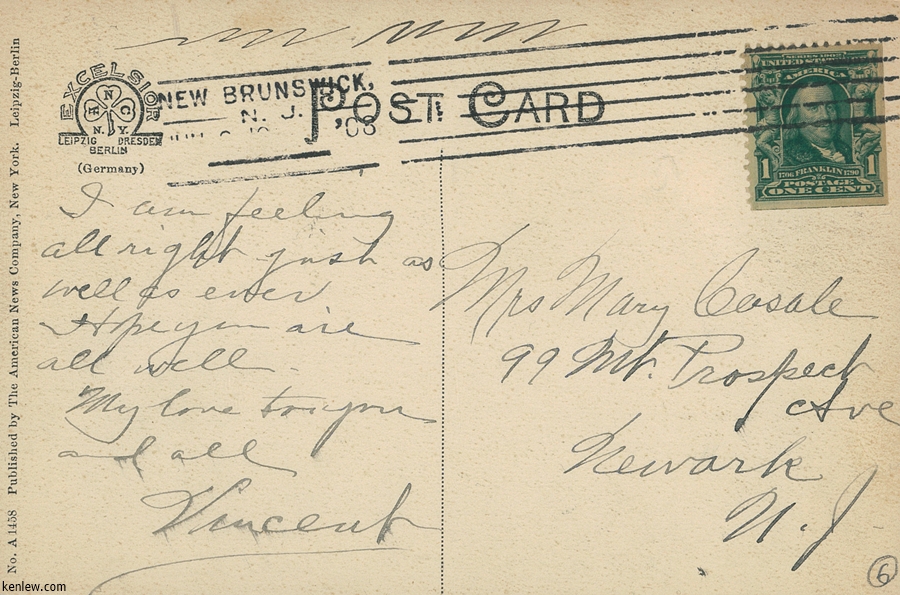 EXCELSIOR
A N C
N.Y.
LEIPZIG DRESDEN
BERLIN
(Germany)
NEW BRUNSWICK,
N. J.
'08
POST CARD
UNITED STATES OF AMERICA
1 1
1706 FRANKLIN 1790
POSTAGE
ONE CENT
I am feeling
all right just as
well as ever
Hope you are
all well.
My love to you
and all
Vincent
Mrs Mary Casale
99 Mt. Prospect
Ave
Newark
N. J
6
No. A 1458 Published by The American News Company, New York. Leipzig-Berlin
kenlew.com